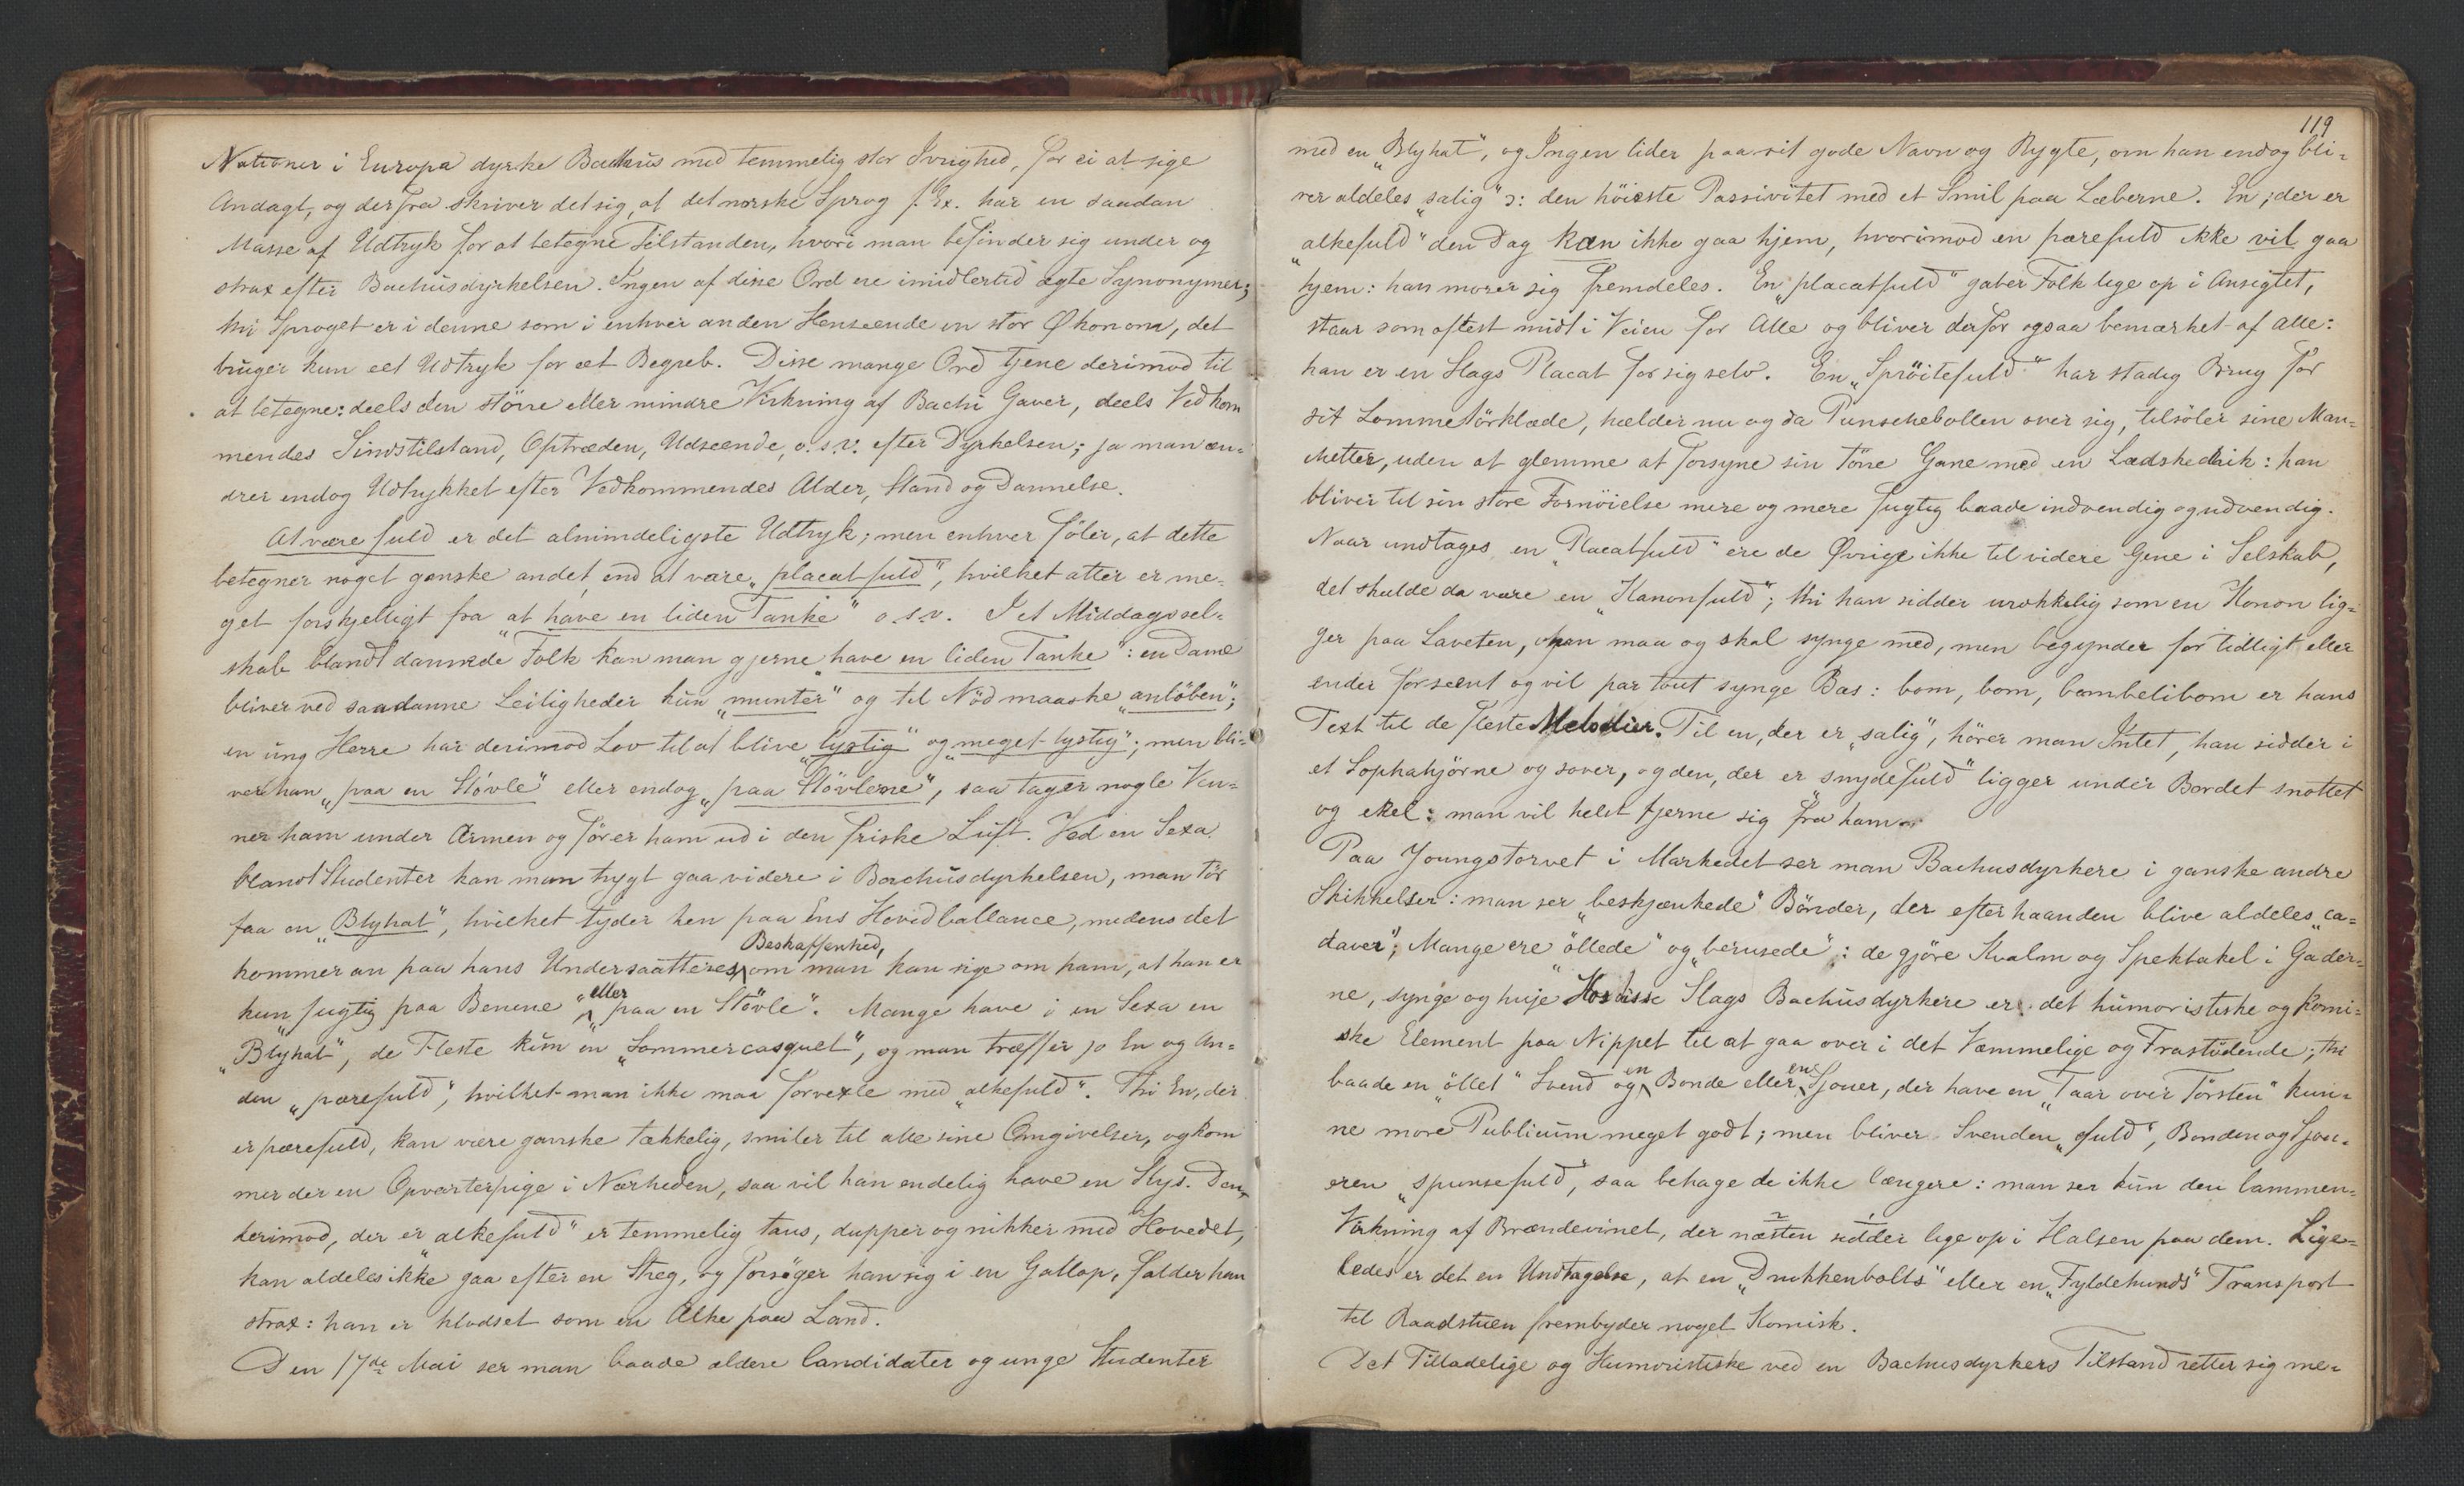 Nationer i Europa dyrke Bachus med temmelig stor Ivrighed, for ei at sige
Andagt, og derfra skriver det sig, at det norske Sprog f. Ex. har en saadan
Masse af Udtryk for at betegne Tilstanden, hvori man befinder sig under og
strax efter Bachusdyrkelsen. Ingen af disse Ord ere imidlertid ægte Synonymer;
thi Sproget er i denne som i enhver anden Henseende en stor Økonom, det
bruger kun eet Udtryk for eet Begreb. Disse mange Ord tjene derimod til
at betegne: deels den större eller mindre Virkning af Bachi Gaver, deels Vedkom
mendes Sindstilstand, Optræden, Udseende, o.s.v. efter Dyrkelsen; ja man æn-
drer endog Udtrykket efter Vedkommendes Alder, Stand og Dannelse.
At være fuld er det almindeligste Udtryk; men enhver föler, at dette
betegner noget ganske andet, end at være „placatfuld“, hvilket atter er me-
get forskjelligt fra „at have en liden Tanke“ o.s.v. I et Middagssel-
skab blandt dannede Folk kan man gjerne „have en liden Tanke“: en Dame
bliver ved saadanne Leiligheder kun „munter“ og til Nöd maaske „anlöben“;
en ung Herre har derimod Lov til at blive „lystig“ og „meget lystig“; men bli-
ver han „paa en Stövle“ eller endog „paa Stövlerne“, saa tager nogle Ven-
ner ham under Armen og förer ham ud i den friske Luft. Ved en Sexa
blandt Studenter kan man trygt gaa videre i Bachusdyrkelsen, man tör
faa en „Blyhat“, hvilket tyder hen paa Ens Hovedballance, medens det
kommer an paa hans Undersaatteres Beskaffenhed, om man kan sige om ham, at han er
kun „fugtig paa Benene“ eller „paa en Stövle“. Mange have i en Sexa en
„Blyhat“, de Fleste kun en „Sommercasquet“, og man træffer jo En og An-
den „pærefuld“, hvilket man ikke maa forvexle med „alkefuld“. Thi En, der
er pærefuld, kan være ganske tækkelig, smiler til alle sine Omgivelser, og kom
mer der en Opvarterpige i Nærheden, saa vil han endelig have en Kys. Den
derimod, der er „alkefuld“ er temmelig taus, dupper og nikker med Hovedet,
kan aldeles ikke gaa efter en Streg, og forsöger han sig i en Gallop, falder han
strax: han er klodset som en Alke paa Land.
Den 17de Mai ser man baade ældere Candidater og unge Studenter
119
med en „Blyhat“, og Ingen lider paa sit gode Navn og Rygte, om han endog bli-
ver aldeles „salig“ ɔ: den höieste Passivitet med et Smil paa Læberne. En, der er
„alkefuld“ den Dag kan ikke gaa hjem, hvorimod en pærefuld ikke vil gaa
hjem: han morer sig fremdeles. En „placatfuld“ gaber Folk lige op i Ansigtet,
staar som oftest midt i Veien for Alle og bliver derfor ogsaa bemærket af Alle:
han er en Slags Placat for sig selv. En „Spröitefuld“ har stadig Brug for
sit Lommetörklæde, hælder nu og da Punschebollen over sig, tilsöler sine Man-
chetter, uden at glemme at forsyne sin törre Gane med en Lædskedrik: han
bliver til sin store Fornöielse mere og mere fugtig baade indvendig og udvendig.
Naar undtages en „Placatfuld“ ere de Øvrige ikke til videre Gene i Selskab,
det skulde da være en „Kanonfuld“; thi han sidder urokkelig som en Kanon lig-
ger paa Laveten, han maa og skal synge med, men begynder for tidligt eller
ender forseent og vil par tout synge Bas: bom, bom, bambelibom er hans
Text til de fleste Melodier. Til en, der er „salig“, hörer man Intet, han sidder i
et Sophahjörne og sover, og den, der er „snydefuld“ ligger under Bordet snottet
og ekel: man vil helst fjerne sig fra ham.
Paa Youngstorvet i Markedet ser man Bachusdyrkere i ganske andre
Skikkelser: man ser „beskjænkede“ Bönder, der efterhaanden blive aldeles „ca-
daver“; Mange ere „öllede“ og „berusede“: de gjöre Kvalm og Spektakel i Gader-
ne, synge og huje. Hos disse Slags Bachusdyrkere er det humoristiske og komi-
ske Element paa Nippet til at gaa over i det Væmmelige og Frastödende; thi
baade en „öllet“ Svend og en Bonde eller en Sjouer, der have en „Taar over Törsten“ kun-
ne more Publicum meget godt; men bliver Svenden „fuld“, Bonden og Sjou-
eren „spunsefuld“, saa behage de ikke længere: man ser kun den lammen-
Virkning af Brændevinet, der næsten sidder lige op i Halsen paa dem. Lige-
ledes er det en Undtagelse, at en „Drukkenbolts“ eller en „Fyldehunds“ Transport
til Raadstuen frembyder noget Komisk.
Det Tilladelige og Humoristiske ved en Bachusdyrkers Tilstand retter sig me-